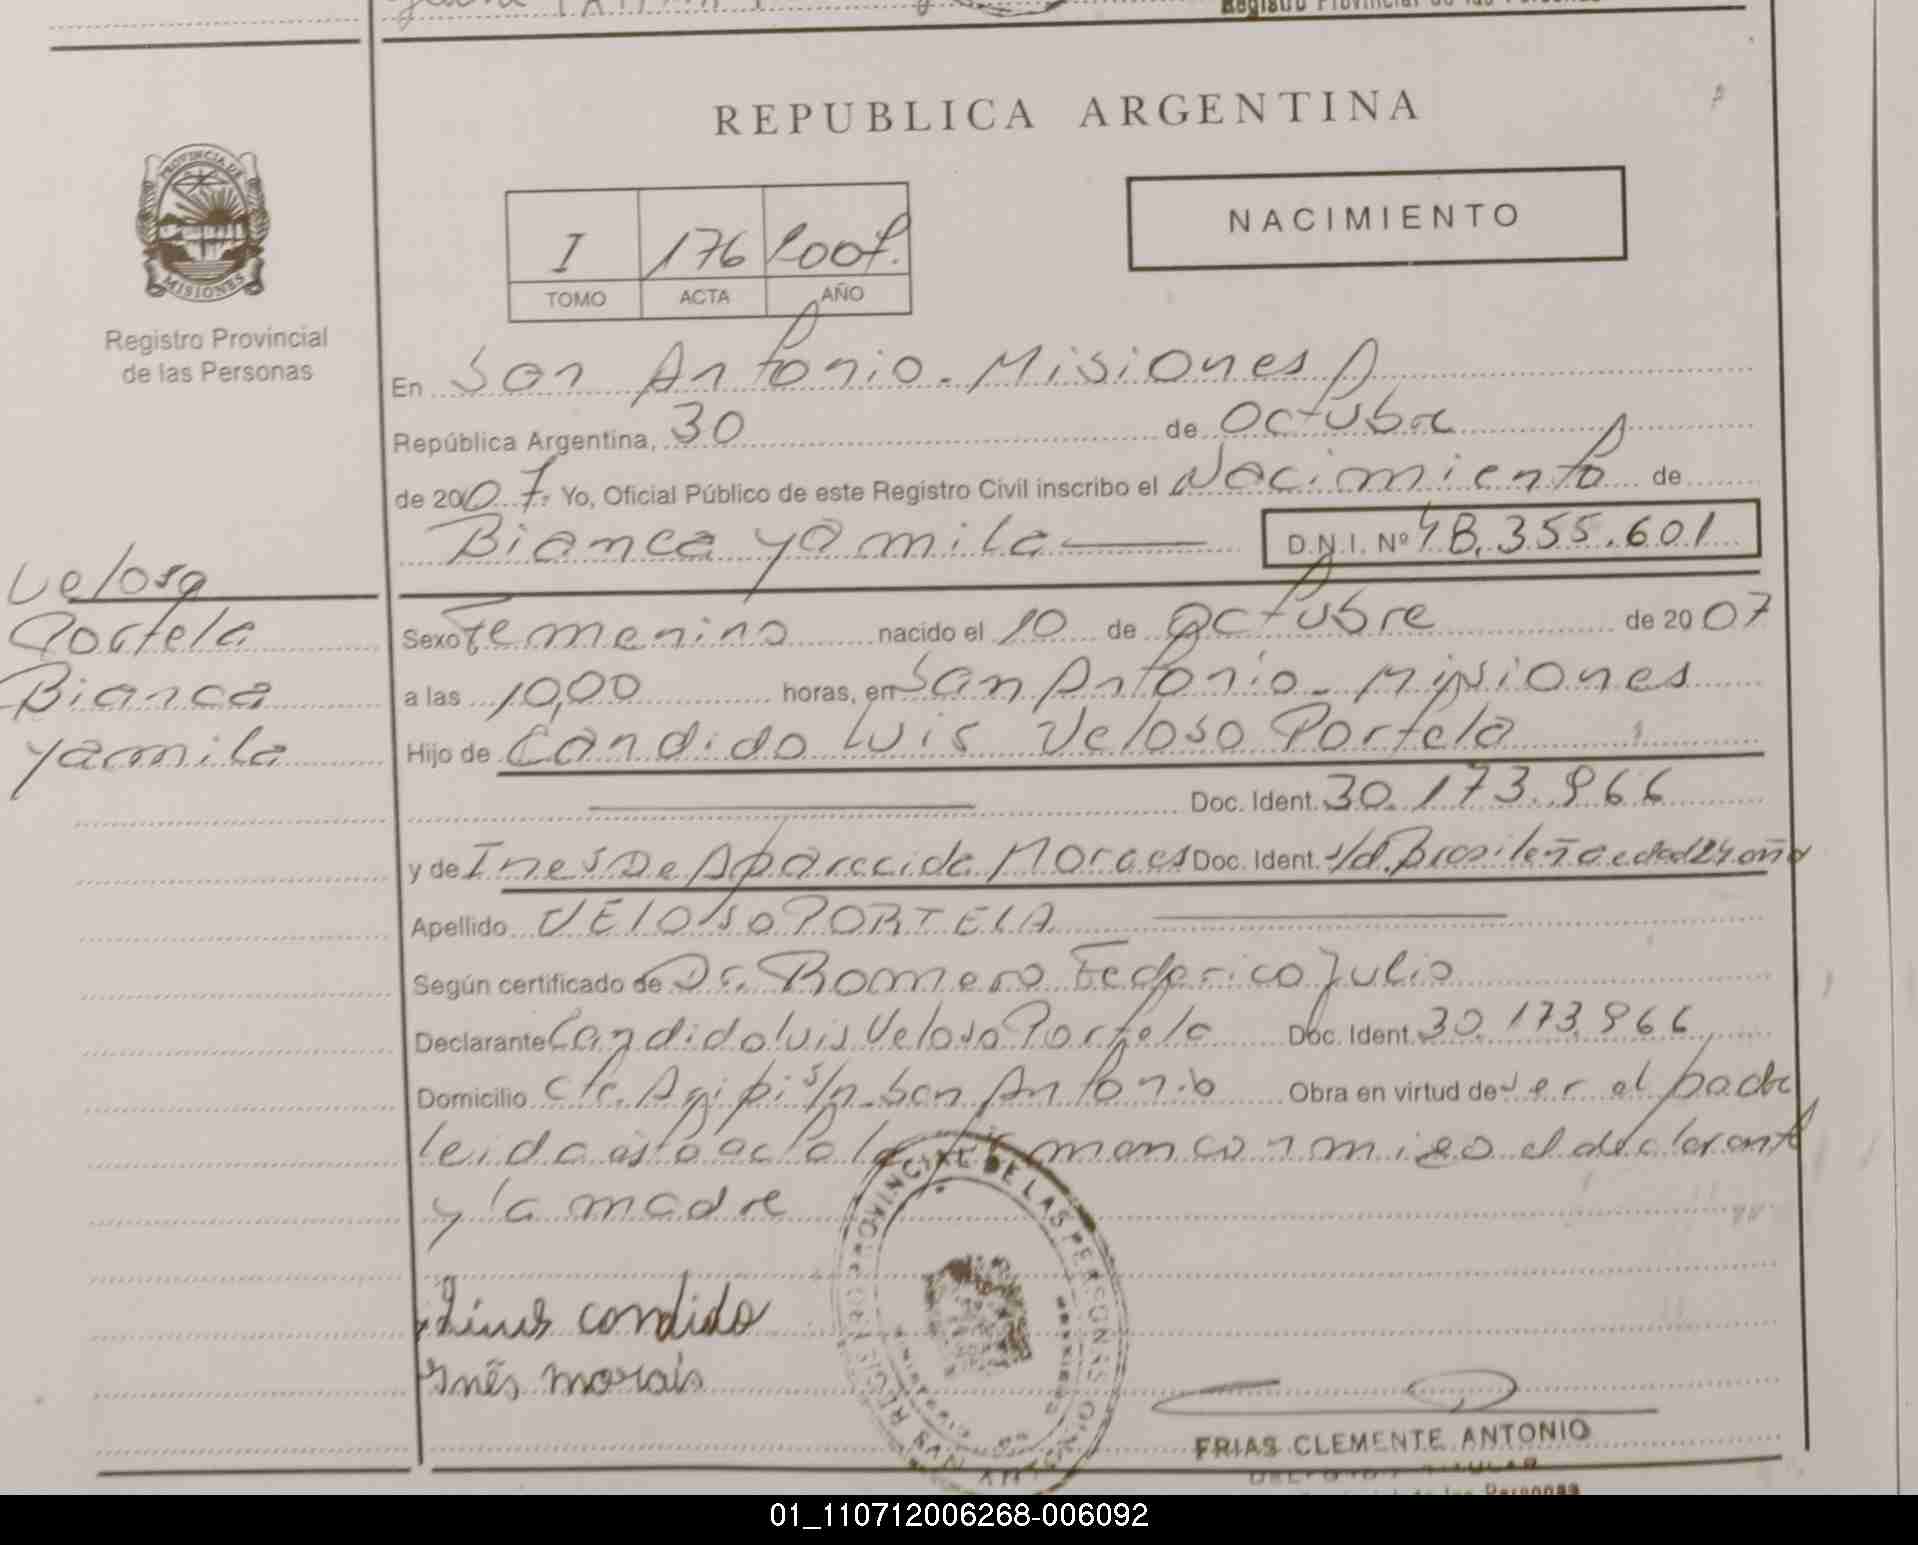 Registro Provincial de las Personas
REPUBLICA ARGENTINA
PROVINCIA DE
MISIONES
Registro Provincial
de las Personas
NACIMIENTO
I 176 2007.
TOMO ACTA AÑO
En San Antonio - Misiones
República Argentina, 30 de Octubre
de 2007. Yo, Oficial Público de este Registro Civil inscribo el Nacimiento de
Bianca Yamila D.N.I. Nº 48.355.601
Veloso
Portela
Bianca
Yamila
Sexo Femenino nacido el 10 de Octubre de 2007
a las 10,00 horas, en San Antonio - Misiones
Hijo de Candido Luis Veloso Portela
Doc. Ident. 30.173.966
y de Ines De Aparecida Moraes Doc. Ident. s/d. Brasileña edad 24 años
Apellido VELOSO PORTELA
Según certificado de Dr. Romero Federico Julio
Declarante Candido Luis Veloso Portela Doc. Ident. 30.173.966
Domicilio s/n - San Antonio Obra en virtud de ser el padre
leida esta acta la firman conmigo el declarante
y la madre
candido
Inês morais
REGISTRO PROVINCIAL DE LAS PERSONAS
SAN ANTONIO
MISIONES
FRIAS CLEMENTE ANTONIO
TITULAR
de las Personas
01_110712006268-006092